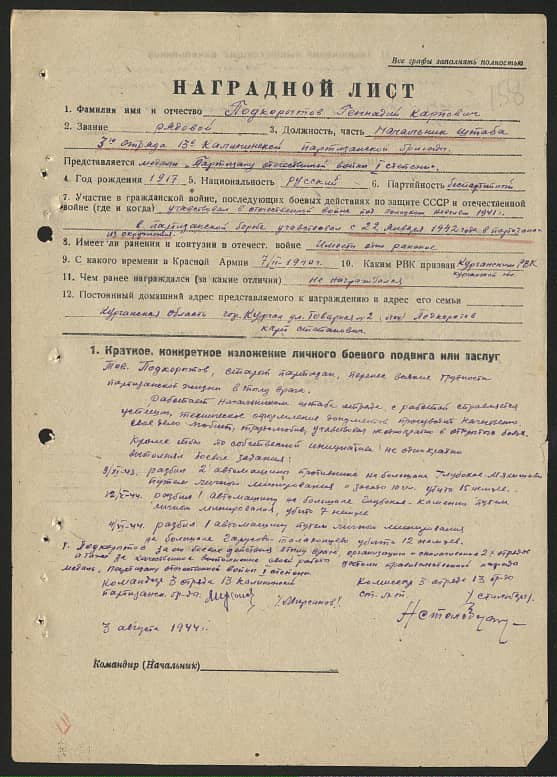 Все графы заполнять полностью
158
НАГРАДНОЙ ЛИСТ
1. Фамилия имя и отчество Подкорытов Геннадий Карпович
2. Звание рядовой 3. Должность, часть Начальник штаба
3го отряда 13й Калининской партизанской бригады.
Представляется медали "Партизану отечественной войны I степени".
4. Год рождения 1917 5. Национальность русский 6. Партийность беспартийный
7. Участие в гражданской войне, последующих боевых действиях по защите СССР и отечественной
войне (где и когда) участвовал в отечественной войне под 1941г.
в партизанской борьбе участвовал с 22 января 1942 года в партизаны
из окружения.
8. Имеет ли ранения и контузии в отечест. войне Имеет одно ранение
9. С какого времени в Красной Армии 1940г. 10. Каким РВК призван Курганским РВК
11. Чем ранее награждался (за какие отличия) не награждался
12. Постоянный домашний адрес представляемого к награждению и адрес его семьи
Курганская область гор. Курган ул. Товарная №2 Подкорытов
Карп Степанович
1. Краткое, конкретное изложение личного боевого подвига или заслуг
Тов. Подкорытов, старый партизан, перенес всякие трудности
партизанской жизни в тылу врага.
Работает Начальником штаба отряда, с работой справляется
успешно, техническое оформление документов производит качественно
свое дело любит, трудолюбив, участвовал неоднократно в открытых боях.
Кроме этого по собственной инициативе неоднократно
выполнял боевые задания:
разбил 2 автомашины противника на большаке Глубокое
путем личного минирования убито 15 немцев.
разбил 1 автомашину на большаке путем
личного минирования, убито 7 немцев
разбил 1 автомашину путем личного минирования
на большаке убито 12 немцев.
Т. Подкорытов за эти боевые действия в тылу врага, организацию
а также за качественное выполнение своей работы достоин правительственной награды
медаль "Партизану отечественной войны" I степени
Командир 3 отряда 13 Калининской Комиссар 3 отряда 13
партизанск. бр-ды
3 августа 1944г.
Командир (Начальник)